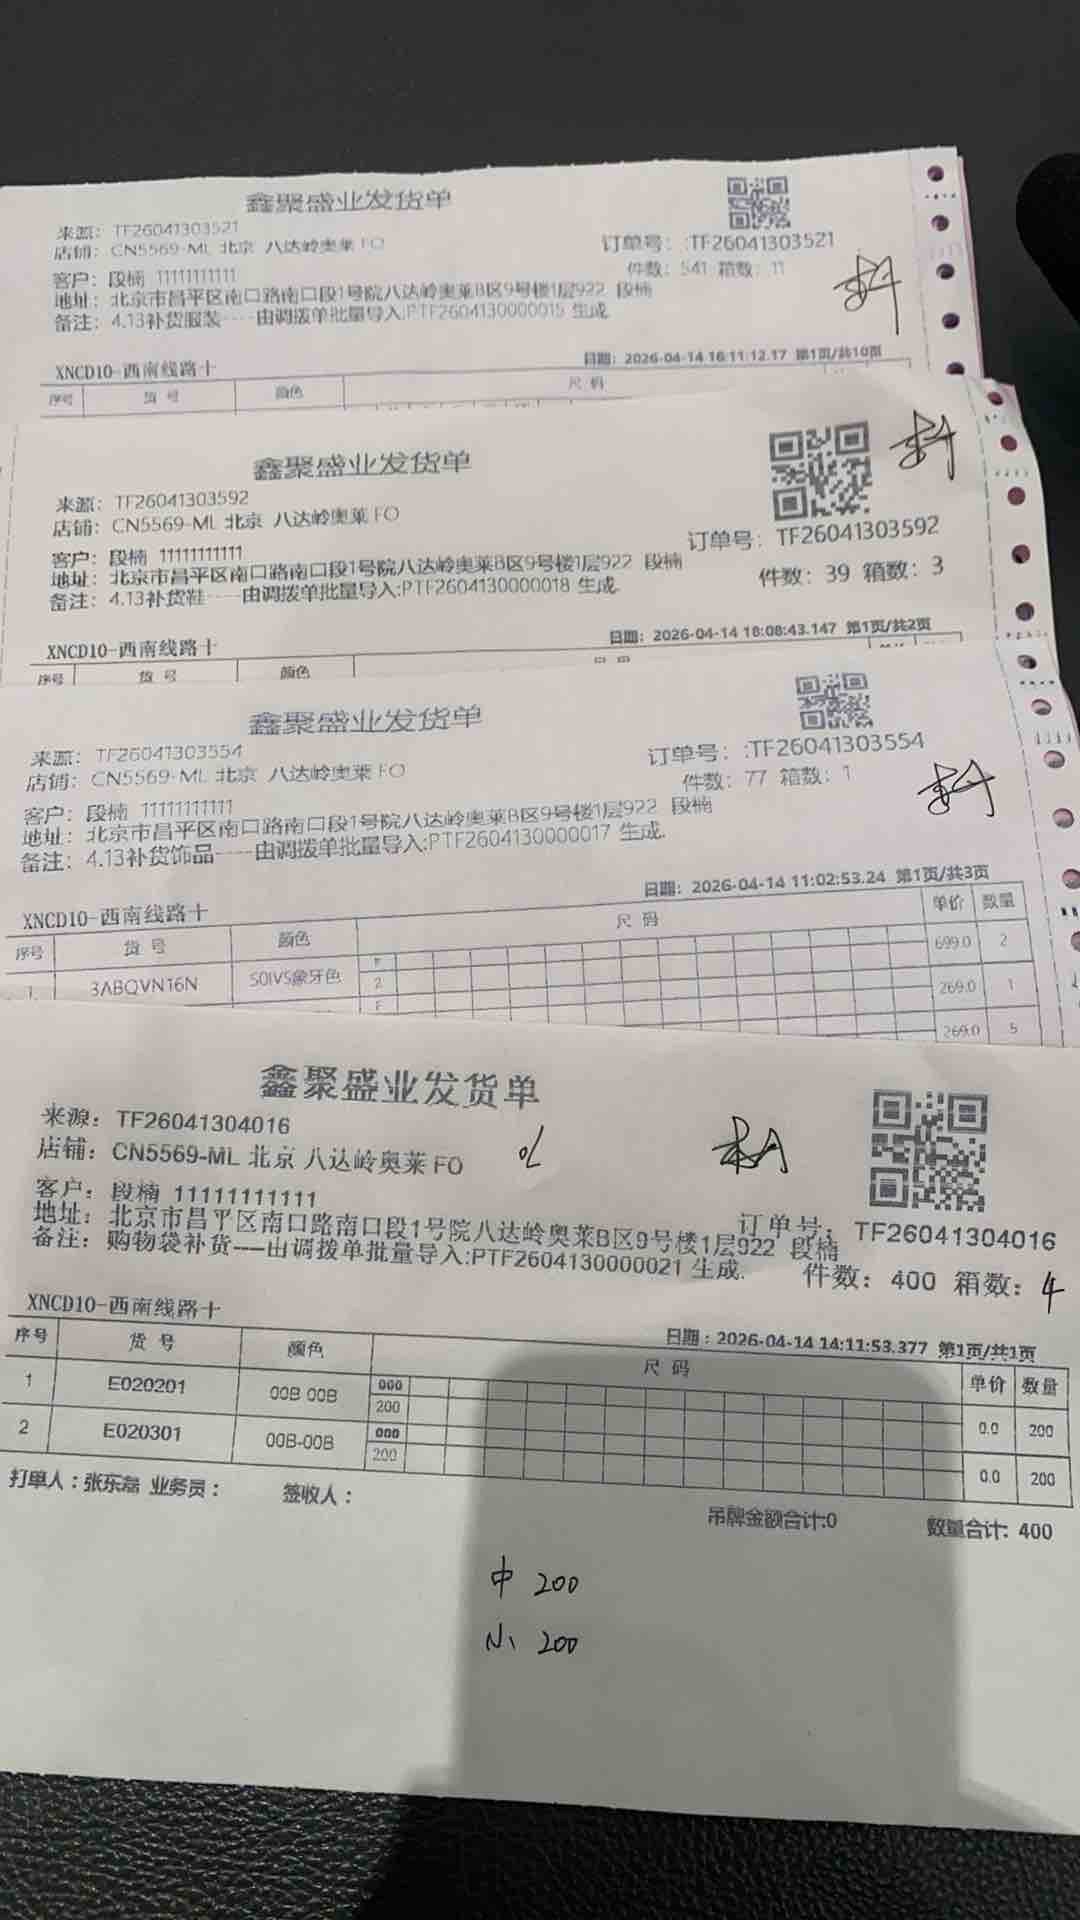 鑫聚盛业发货单
来源：TF26041303521
店铺：CN5569-ML 北京 八达岭奥莱 FO
订单号：:TF26041303521
客户：段楠 11111111111
件数：541 箱数：11
地址：北京市昌平区南口路南口段1号院八达岭奥莱B区9号楼1层922 段楠
备注：4.13补货服装----由调拨单批量导入:PTF2604130000015 生成.
XNCD10-西南线路十
日期：2026-04-14 16:11:12.17 第1页/共10页
序号 货号 颜色 尺码
鑫聚盛业发货单
来源：TF26041303592
店铺：CN5569-ML 北京 八达岭奥莱 FO
订单号：TF26041303592
客户：段楠 11111111111
地址：北京市昌平区南口路南口段1号院八达岭奥莱B区9号楼1层922 段楠
件数：39 箱数：3
备注：4.13补货鞋----由调拨单批量导入:PTF2604130000018 生成.
XNCD10-西南线路十
日期：2026-04-14 18:08:43.147 第1页/共2页
序号 货号 颜色
鑫聚盛业发货单
来源：TF26041303554
店铺：CN5569-ML 北京 八达岭奥莱 FO
订单号：:TF26041303554
件数：77 箱数：1
客户：段楠 11111111111
地址：北京市昌平区南口路南口段1号院八达岭奥莱B区9号楼1层922 段楠
备注：4.13补货饰品----由调拨单批量导入:PTF2604130000017 生成.
XNCD10-西南线路十
日期：2026-04-14 11:02:53.24 第1页/共3页
序号 货号 颜色 尺码 单价 数量
1 3ABQVN16N 50IVS象牙色 F 699.0 2
2
F 269.0 1
269.0 5
鑫聚盛业发货单
来源：TF26041304016
店铺：CN5569-ML 北京 八达岭奥莱 FO
客户：段楠 11111111111
地址：北京市昌平区南口路南口段1号院八达岭奥莱B区9号楼1层922 段楠
订单号：TF26041304016
备注：购物袋补货----由调拨单批量导入:PTF2604130000021 生成.
件数：400 箱数：4
XNCD10-西南线路十
日期：2026-04-14 14:11:53.377 第1页/共1页
序号 货号 颜色 尺码 单价 数量
1 E020201 00B-00B 000 0.0 200
200
2 E020301 00B-00B 000 0.0 200
200
打单人：张东磊 业务员： 签收人：
吊牌金额合计:0 数量合计: 400
中 200
小 200